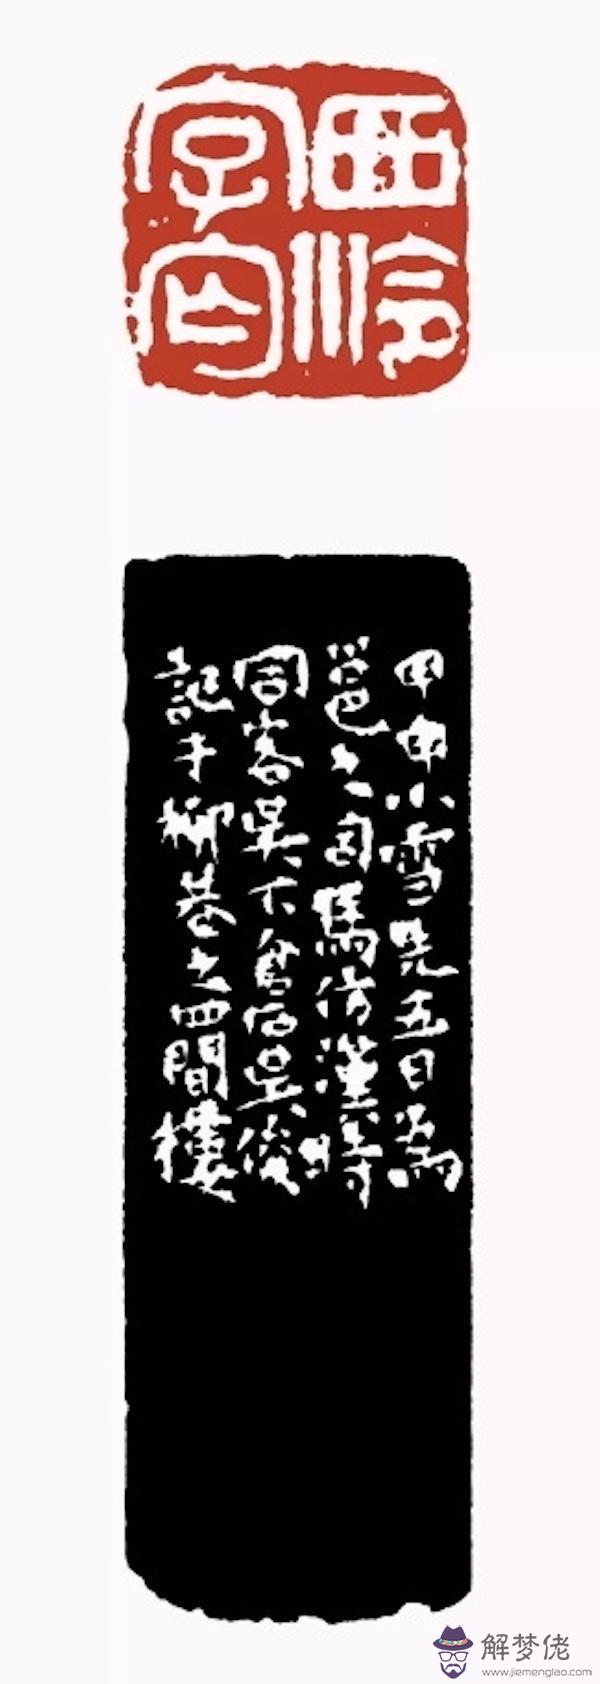 西泠
字丐
甲申小雪先五日為
邕之司馬仿漢時
同客吳下倉石吳俊
記于柳巷之四間樓
解梦佬
www.jiemenglao.com